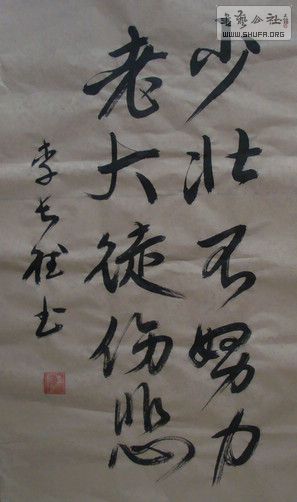 少壮不努力
老大徒伤悲
李长胜书
書藝公社
WWW.SHUFA.ORG